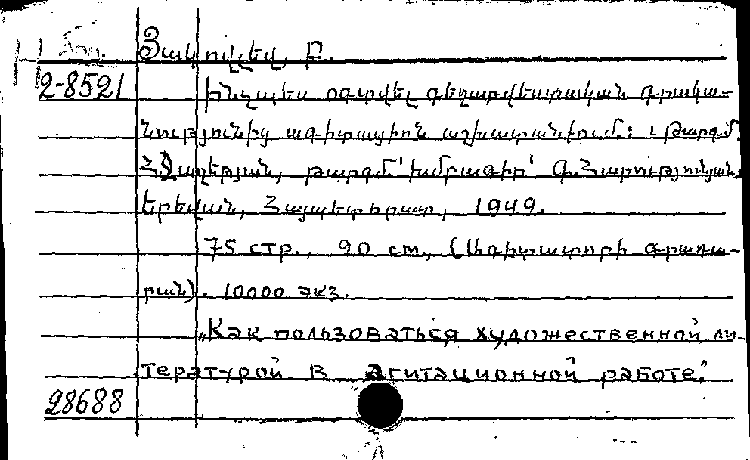 Յակովլեվ, Բ.
2-8521
Ինչպես օգտվել գեղարվեստական գրակա-
նությունից ագիտացիոն աշխատանքում: Թարգմ.
թարգմ. խմբագիր՝ Հարությունյան,
Երեվան, Հայպետհրատ, 1949.
75 стр., 20 см, (Ագիտատորի գրադա-
րան). 10000 экз.
„Как пользоваться художественной ли-
тературой в агитационной работе."
28688